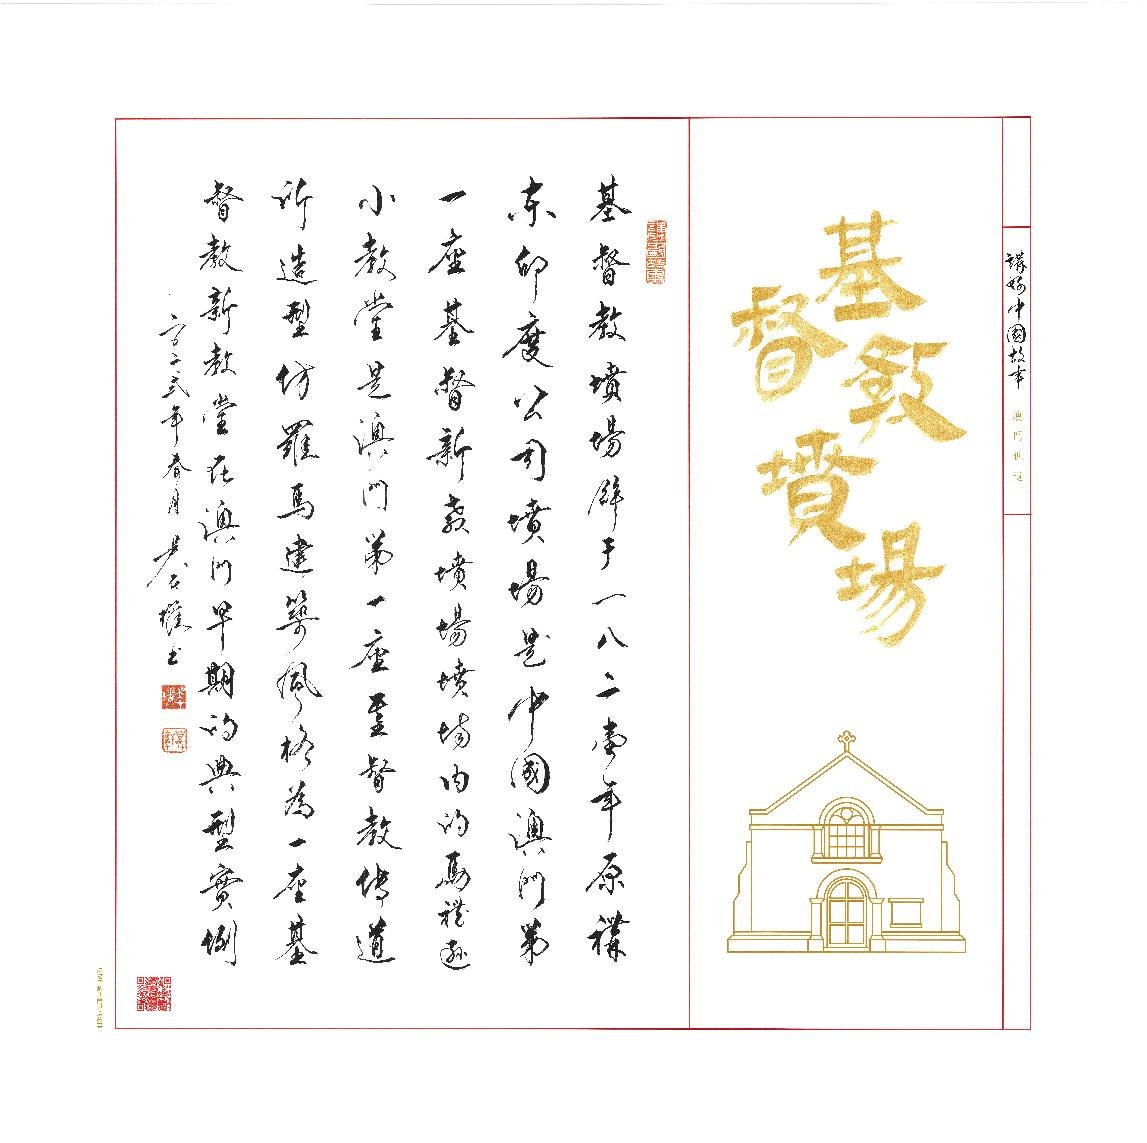 講好中國故事
澳門世遺
基督教墳場
基督教墳場辟于一八二壹年原稱
东印度公司墳場是中國澳門第
一座基督新教墳場墳場内的馬禮逊
小教堂是澳門第一座基督教傳道
所造型仿羅馬建築風格為一座基
督教新教堂在澳門早期的典型實例
二〇二弍年春月